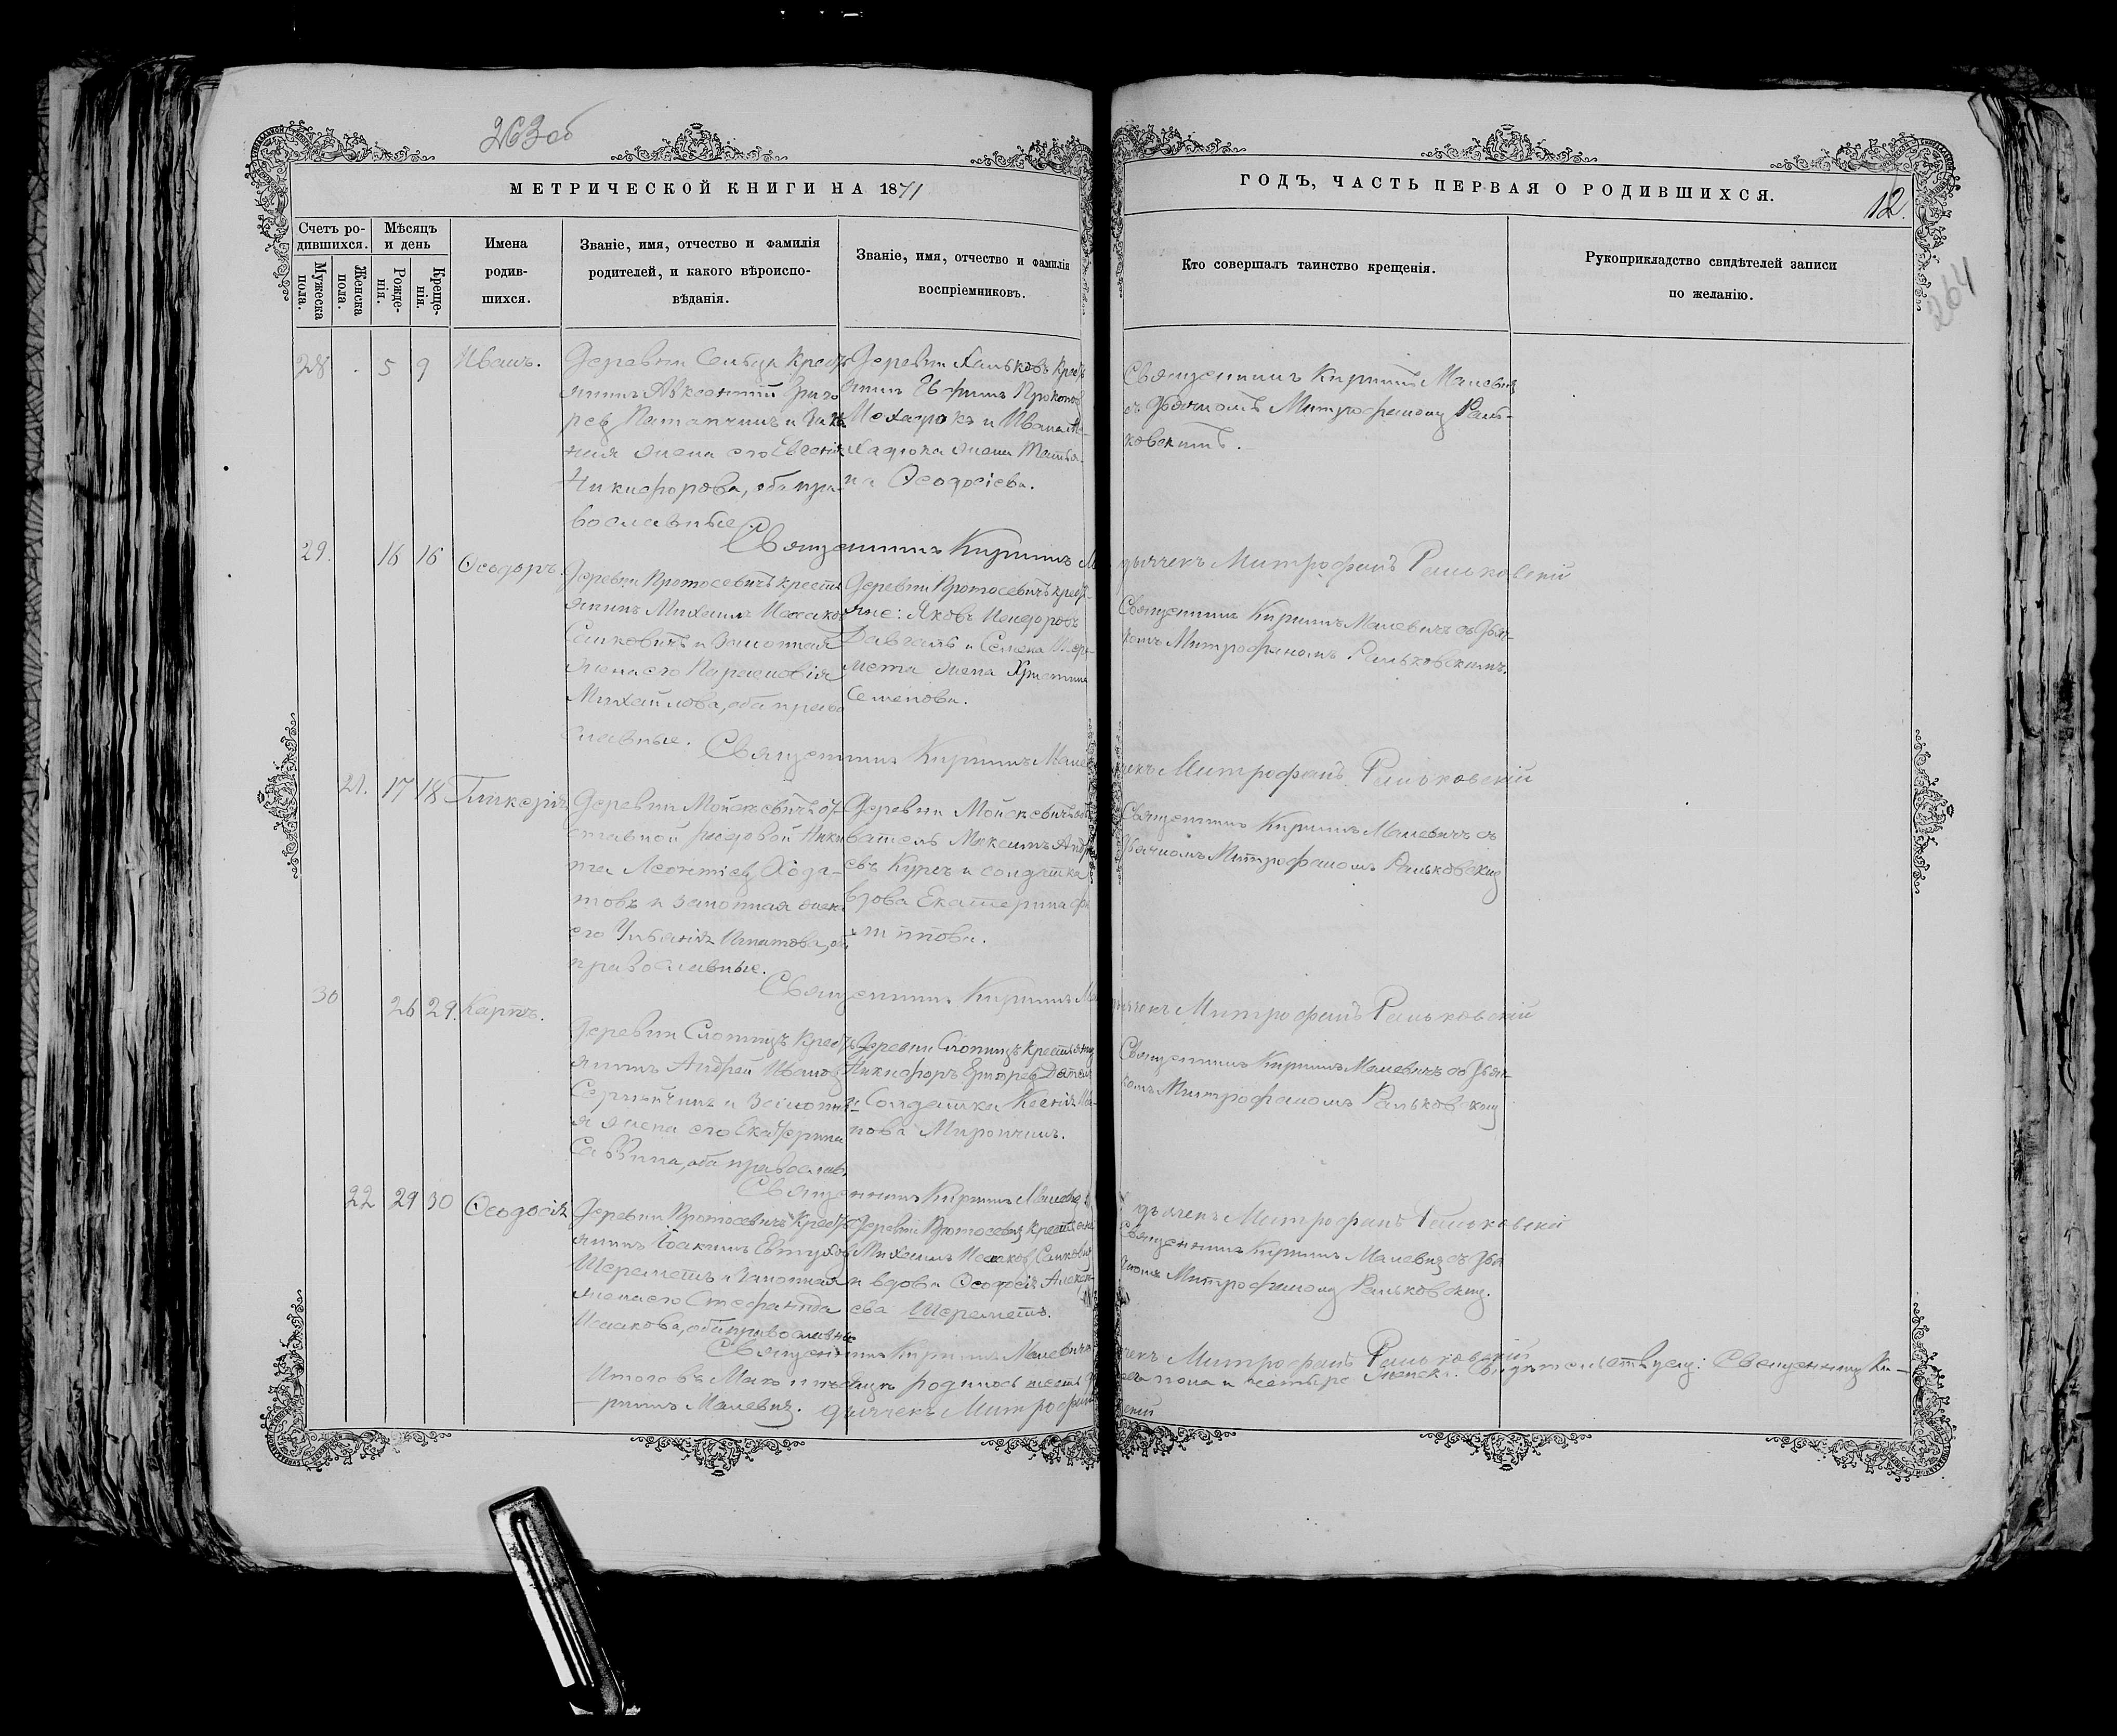 263об
МЕТРИЧЕСКОЙ КНИГИ НА 1871
ГОДЪ, ЧАСТЬ ПЕРВАЯ О РОДИВШИХСЯ.
12.
264
Счетъ ро-
дившихся.
Мужеска
пола.
Женска
пола.
Мѣсяцъ
и день
Рожде-
нія.
Креще-
нія.
Имена
родив-
шихся.
Званіе, имя, отчество и фамилія
родителей, и какого вѣроиспо-
вѣданія.
Званіе, имя, отчество и фамилія
воспріемниковъ.
Кто совершалъ таинство крещенія.
Рукоприкладство свидѣтелей записи
по желанію.
28 5 9 Иванъ.
Деревни Сельца Кресть
янинъ Авксентій Григо
рев и зако
ная жена его Евгенія
Никифорова, оба пра-
вославные.
Деревни Хальковъ Кресть
янинъ Ефимъ Прокопов
и Ивана
жена Татья-
на Ѳеодосіева.
Священникъ Кириллъ Малевич
съ дьячкомъ Митрофаномъ Рань-
ковскимъ.
Священникъ Кириллъ
дьячекъ Митрофанъ Раньковскій
29. 16 16 Ѳеодоръ.
Деревни Протосевичъ кресть
янинъ Михаилъ Исааков
Санковичъ и Законная
жена его Параскевія
Михайлова, оба право
славные.
Деревни Протосевичъ крест-
яне: Яковъ Исидоровъ
и Семена Шере-
мета жена Христина
Семенова.
Священникъ Кириллъ Малевичъ съ дьяч-
комъ Митрофаномъ Раньковскимъ.
Священникъ Кириллъ Малев
чекъ Митрофанъ Раньковскій
21. 17 18 Гликерія
Деревни Мойсеевичъ от-
ставной рядовой Ники
та Леонтіев Хода-
товъ и законная жена
его Ульянія Игнатова, об
православные.
Деревни Мойсеевичъ
Максимъ Андре
евъ и солдатка
вдова Екатерина Фи
липпова.
Священникъ Кириллъ Малевичъ съ
дьячкомъ Митрофаномъ Раньковским
Священникъ Кириллъ Ма
дьячекъ Митрофанъ Раньковскій
30 26 29. Карпъ.
Деревни Слопищъ Кресть
янинъ Андрей Иванов
и Законна
я жена его Екатерина
Саввина, оба православ.
Деревни Слопищъ крестьянин
Никифоръ Григорев
и Солдатка Ксенія Ива-
нова Мирончикъ.
Священникъ Кириллъ Малевичъ съ дьяч-
комъ Митрофаномъ Раньковским
Священникъ Кириллъ Малеви
дьячекъ Митрофанъ Раньковскій
22 29 30 Ѳеодосія
Деревни Протосевичъ Кресть
янинъ Іоакимъ Евтухов
Шереметъ и Законная
жена его Стефанида
Исаакова, оба православные
Деревни Протосевич Крестьянин
Михаилъ Исааков Санкович
и вдова Ѳеодосія Алексе-
ева Шереметъ.
Священникъ Кириллъ Малевич съ дья
чкомъ Митрофаном Раньковским.
Священникъ Кириллъ Малевичъ
чекъ Митрофанъ Раньковскій
Итого въ Маѣ мѣсяцѣ родилось
пола и четыре женск. Свидѣтельствуем: Священник Ки-
риллъ Малевич. дьячекъ Митрофан
скій